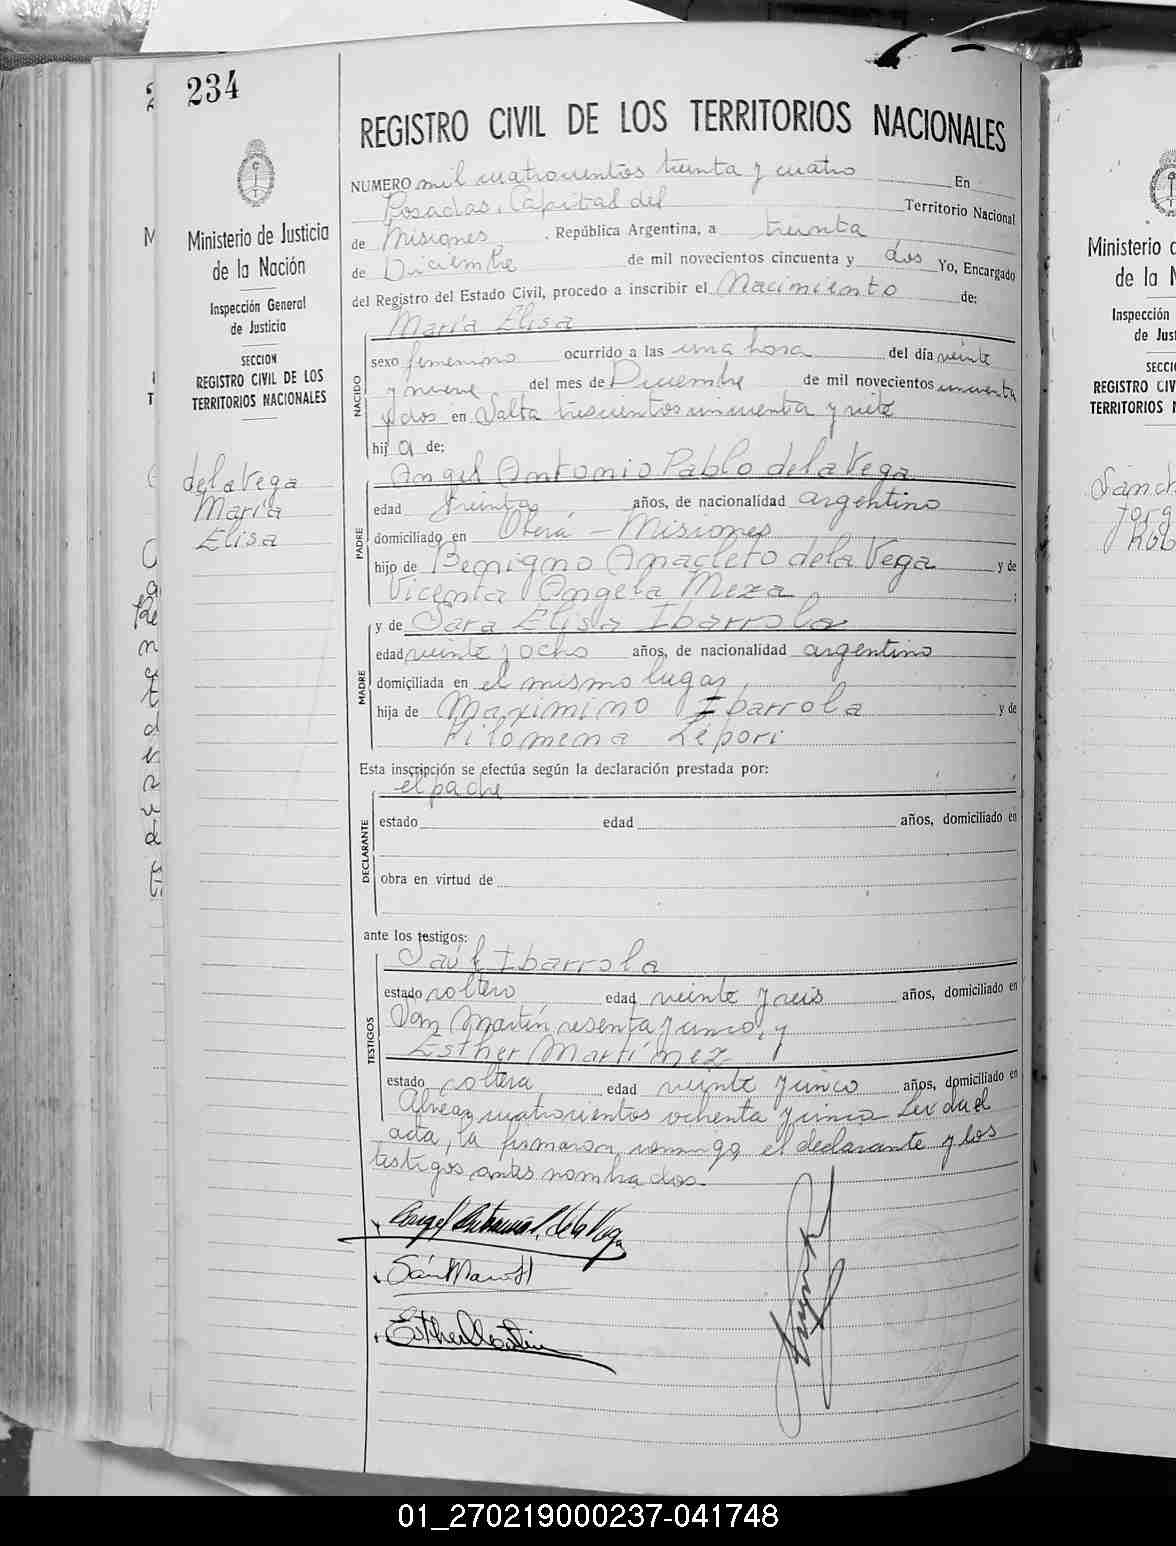 234
REGISTRO CIVIL DE LOS TERRITORIOS NACIONALES
Ministerio de Justicia
de la Nación
Inspección General
de Justicia
SECCION
REGISTRO CIVIL DE LOS
TERRITORIOS NACIONALES
de la Vega
María
Elisa
NUMERO mil cuatrocientos treinta y cuatro En
Posadas, Capital del Territorio Nacional
de Misiones, República Argentina, a treinta
de Diciembre de mil novecientos cincuenta y dos Yo, Encargado
del Registro del Estado Civil, procedo a inscribir el Nacimiento de:
María Elisa
NACIDO
sexo femenino ocurrido a las una hora del día veinte
y nueve del mes de Diciembre de mil novecientos cincuenta
y dos en Salta trescientos cincuenta y siete
hij a de:
Angel Antonio Pablo de la Vega
PADRE
edad treinta años, de nacionalidad argentino
domiciliado en Oberá - Misiones
hijo de Benigno Anacleto de la Vega y de
Vicenta Angela Meza ;
y de Sara Elisa Ibarrola
MADRE
edad veinte y ocho años, de nacionalidad argentino
domiciliada en el mismo lugar
hija de Maximino Ibarrola y de
Filomena Lépori
Esta inscripción se efectúa según la declaración prestada por:
el padre
DECLARANTE
estado edad años, domiciliado en
obra en virtud de
ante los testigos:
Saúl Ibarrola
TESTIGOS
estado soltero edad veinte y seis años, domiciliado en
San Martín sesenta y cinco, y
Esther Martínez
estado soltera edad veinte y cinco años, domiciliado en
Alvear cuatrocientos ochenta y cinco Leída el
acta, la firmaron conmigo el declarante y los
testigos antes nombrados.
Ministerio d
de la N
Inspección
de Just
SECCI
REGISTRO CIV
TERRITORIOS N
Sánch
Jorg
Rob
01_270219000237-041748